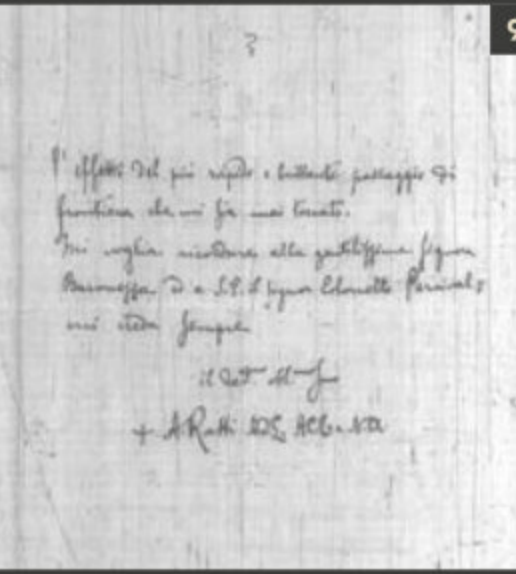 3
9
l'effetto del più rapido e brillante passaggio di
frontiera che mi sia mai toccato.
Mi voglia ricordare alla gentilissima signora
Baronessa ed a S.E. il signor Colonnello
mi creda sempre
il
+ A Ratti